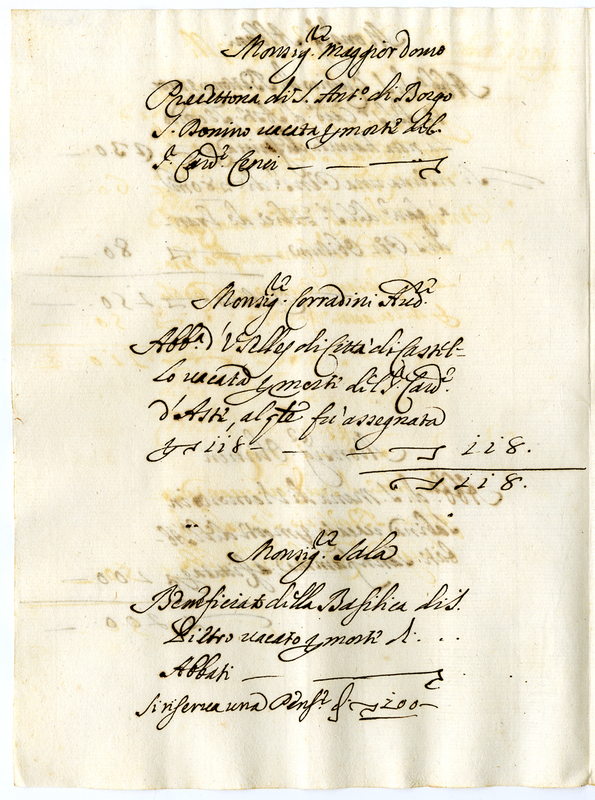 Monsig.re Maggior domo
Precettoria di S. Ant.o di Borgo
S. Donino vacata p morte del
S. Card.e Cenci — — —
Monsig.re Corradini Aud.re
Abb.a d' di Città di Castel-
lo vacata p morte del S. Card.e
d'Asti, al qle fu assegnata
p 118 — — — 118.
118.
Monsig.re Sala
Beneficiato della Basilica di S.
Pietro vacato p morte di . . .
Abbati —
Si riserva una Pens.e di 200 —